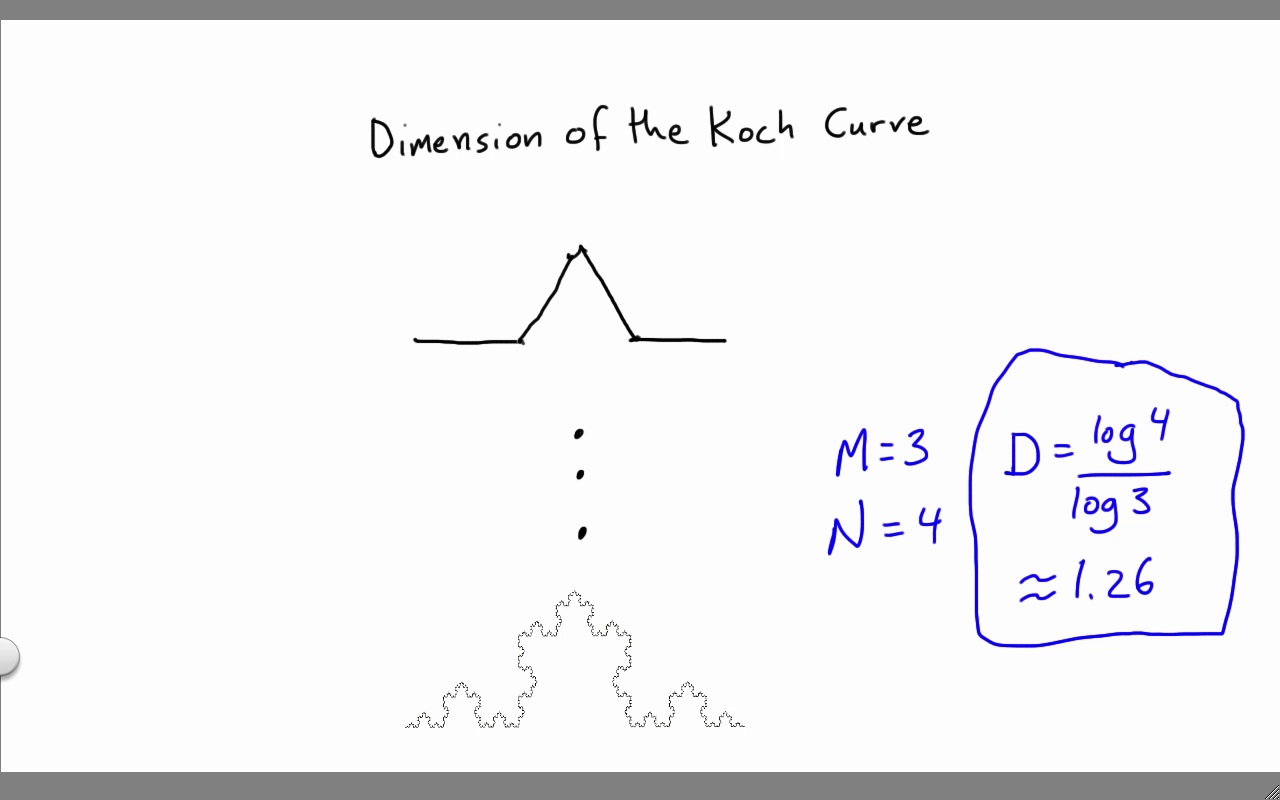 Dimension of the Koch Curve
M = 3
N = 4
D = log 4 / log 3
≈ 1.26